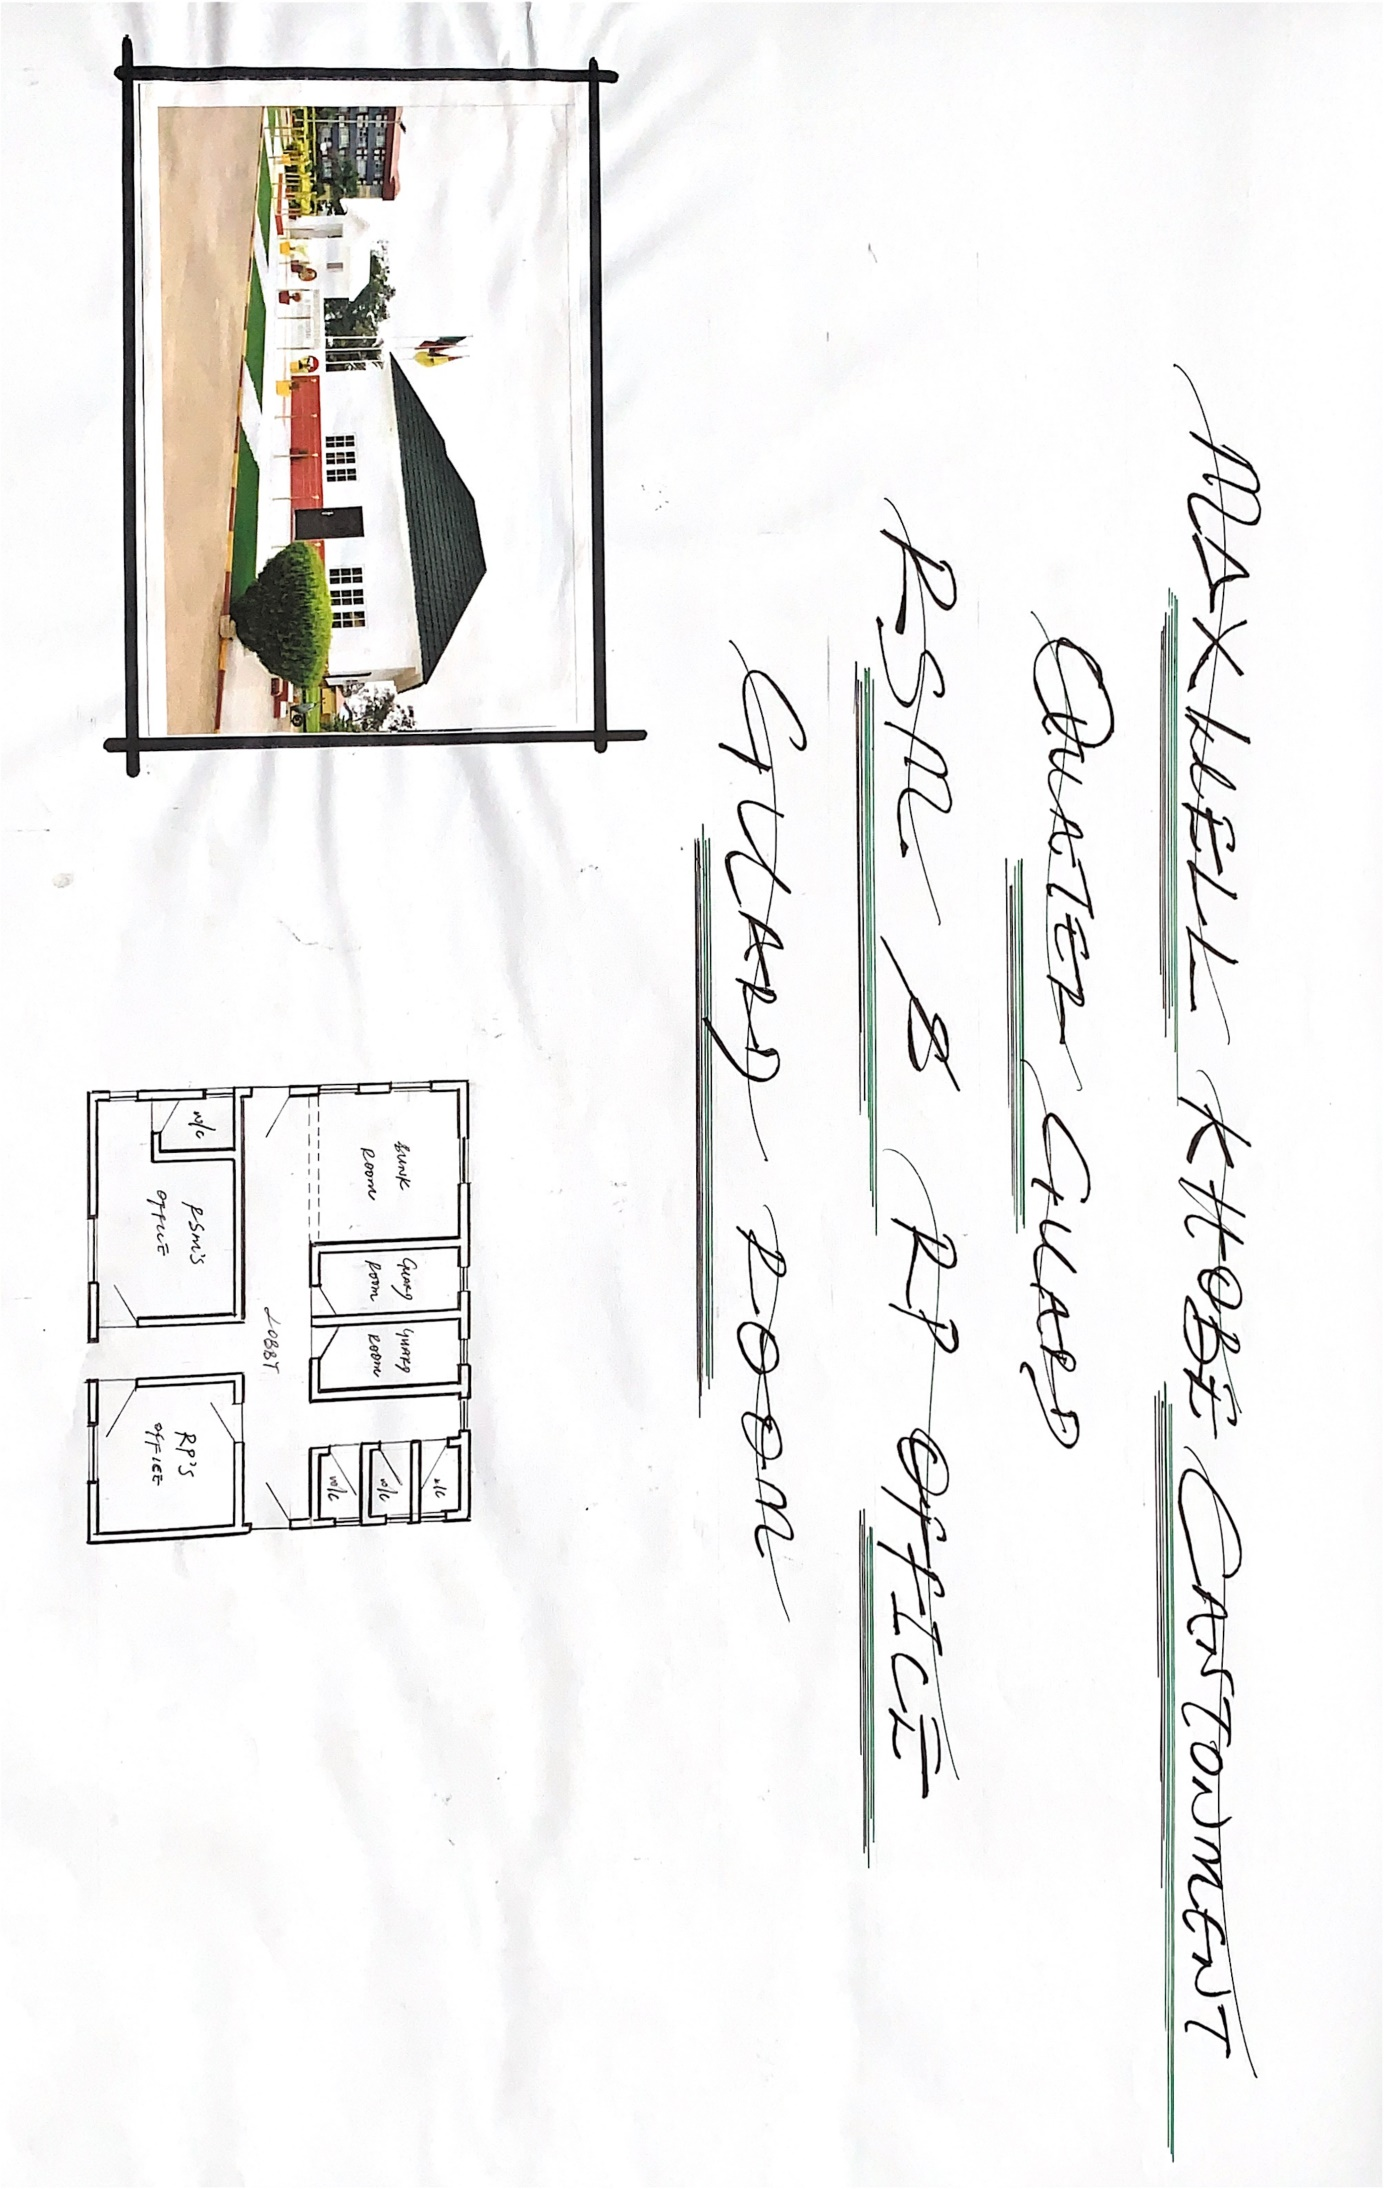 MAXWELL KHOBE CANTONMENT
QUATER GUARD
RSM & RP OFFICE
GUARD ROOM
BUNK
ROOM
GUARD
ROOM
GUARD
ROOM
W/C
W/C
W/C
LOBBY
W/C
RSM'S
OFFICE
RP'S
OFFICE